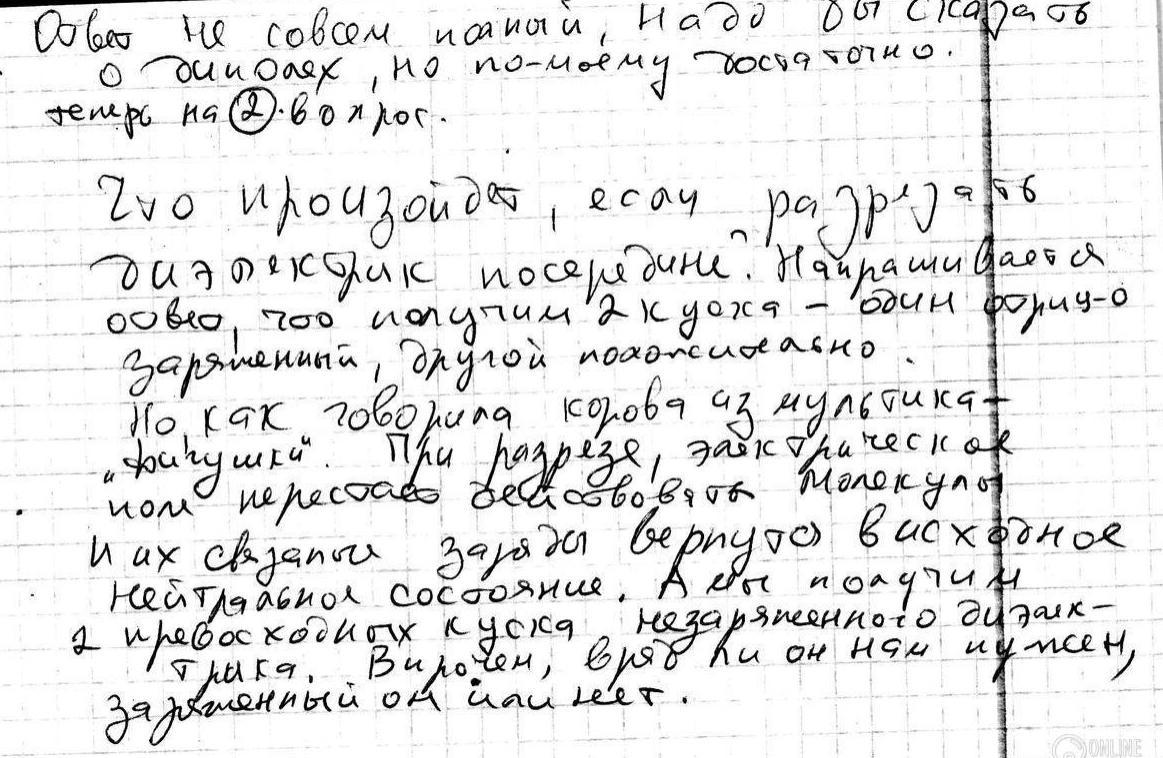 Ответ не совсем полный, надо бы сказать
о диполях, но по-моему достаточно.
теперь на ② вопрос.
Что произойдет, если разрезать
диэлектрик посередине. Напрашивается
ответ, что получим 2 куска – один отриц-о
заряженный, другой положительно.
Но как говорила корова из мультика –
"фигушки". При разрезе, электрическое
поле перестает действовать молекулы
и их связаные заряды вернутся в исходное
нейтральное состояние. А мы получим
2 превосходных куска незаряженного диэлек-
трика. Впрочем, вряд ли он нам нужен,
заряженный он или нет.
ONLINE